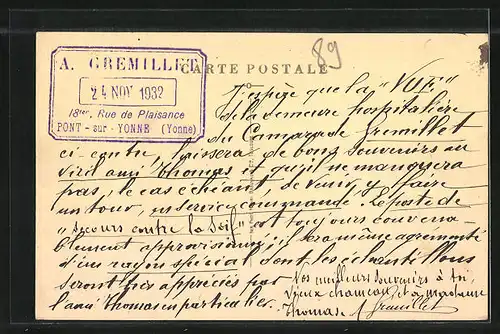 A. GREMILLET
24 NOV 1932
18ter, Rue de Plaisance
PONT - sur - YONNE (Yonne)
CARTE POSTALE
89
J'espère que la "VUE"
de la demeure hospitalière
du Camarade Gremillet
ci-contre, laissera de bons souvenirs au
vieil ami Thomas et qu'il ne manquera
pas, le cas échéant, de venir, y faire
un tour, en service commandé. Le poste de
"secours contre la Soif" est toujours convena-
blement approvisionné, il sera même agrémenté
d'un rayon spécial dont les échantillons
seront très appréciés par
l'ami Thomas en particulier.
Nos meilleurs souvenirs à toi,
vieux chameau, et à madame
Thomas. A. Gremillet